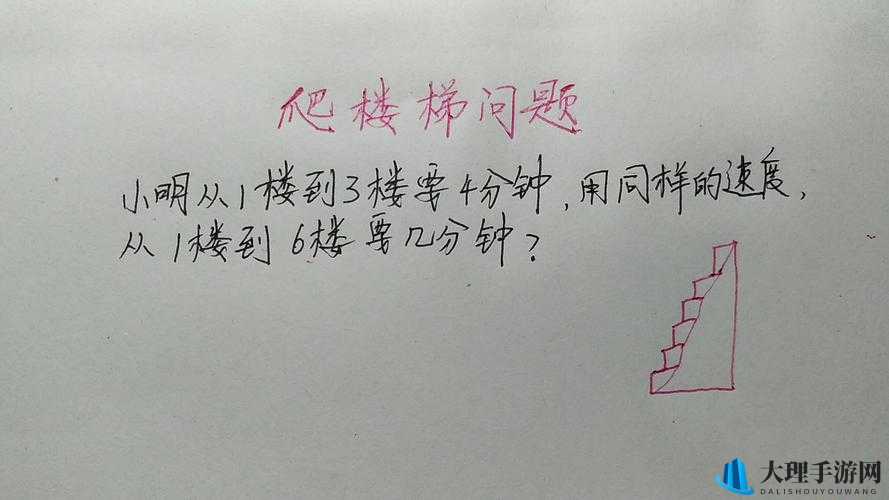 爬楼梯问题
小明从1楼到3楼要4分钟,用同样的速度,
从1楼到6楼要几分钟?
大理手游网
DALISHOUYOUWANG